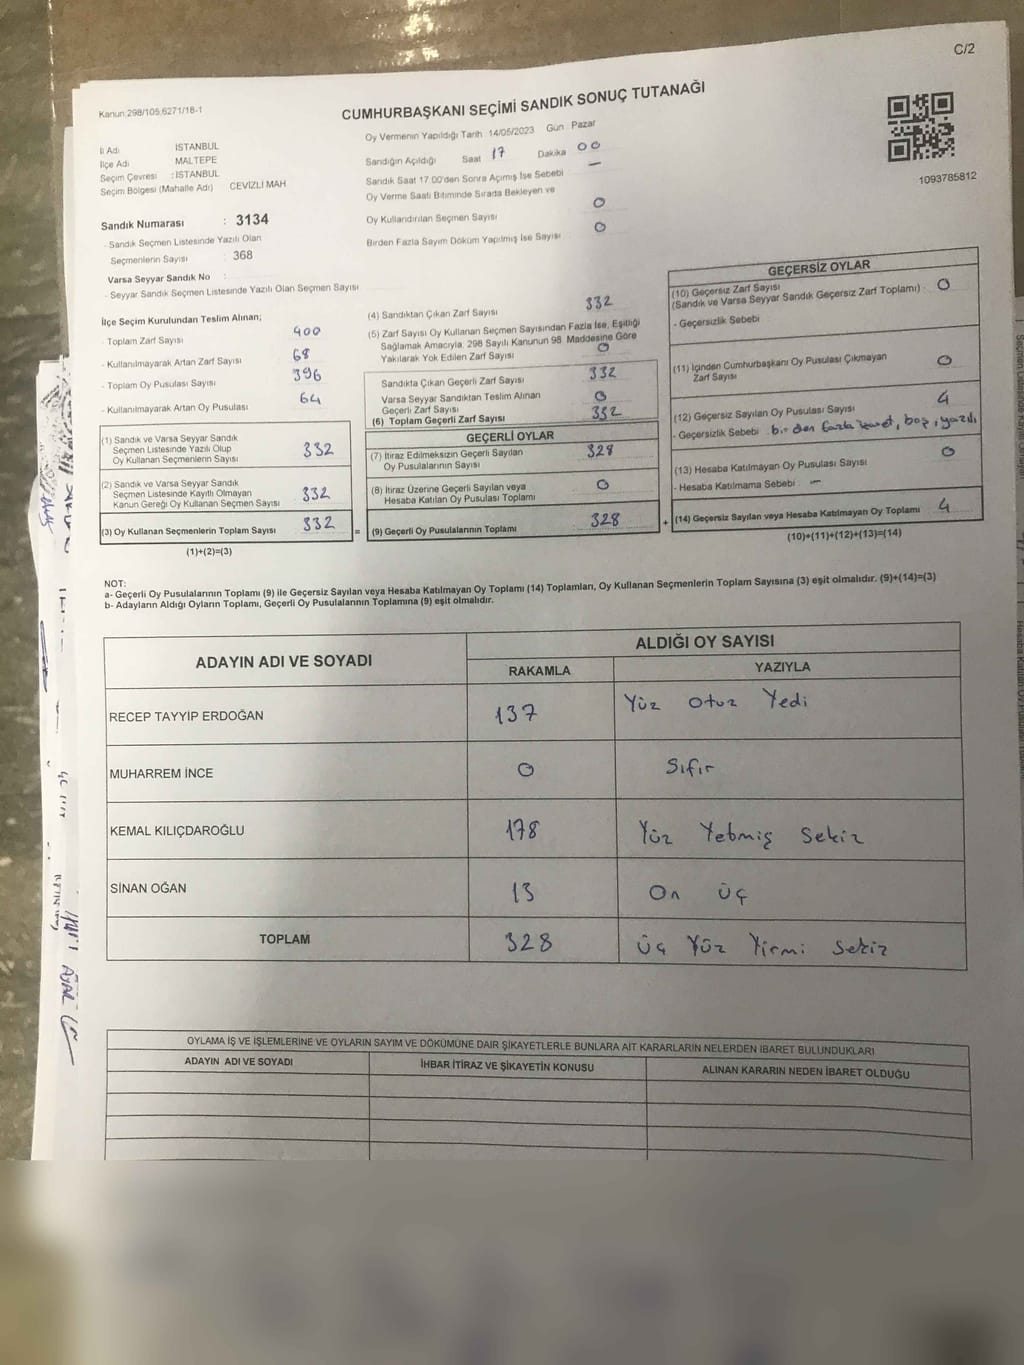 C/2
Kanun:298/105,6271/18-1
CUMHURBAŞKANI SEÇİMİ SANDIK SONUÇ TUTANAĞI
İl Adı İSTANBUL
İlçe Adı MALTEPE
Seçim Çevresi : İSTANBUL
Seçim Bölgesi (Mahalle Adı) CEVİZLİ MAH
Sandık Numarası : 3134
- Sandık Seçmen Listesinde Yazılı Olan
Seçmenlerin Sayısı : 368
Varsa Seyyar Sandık No :
- Seyyar Sandık Seçmen Listesinde Yazılı Olan Seçmen Sayısı
Oy Vermenin Yapıldığı Tarih 14/05/2023 Gün Pazar
Sandığın Açıldığı Saat 17 Dakika 00
Sandık Saat 17.00'den Sonra Açımış İse Sebebi —
Oy Verme Saati Bitiminde Sırada Bekleyen ve
Oy Kullandırılan Seçmen Sayısı 0
Birden Fazla Sayım Döküm Yapılmış İse Sayısı 0
1093785812
İlçe Seçim Kurulundan Teslim Alınan;
- Toplam Zarf Sayısı 400
- Kullanılmayarak Artan Zarf Sayısı 68
- Toplam Oy Pusulası Sayısı 396
- Kullanılmayarak Artan Oy Pusulası 64
(1) Sandık ve Varsa Seyyar Sandık
Seçmen Listesinde Yazılı Olup
Oy Kullanan Seçmenlerin Sayısı 332
(2) Sandık ve Varsa Seyyar Sandık
Seçmen Listesinde Kayıtlı Olmayan
Kanun Gereği Oy Kullanan Seçmen Sayısı 332
(3) Oy Kullanan Seçmenlerin Toplam Sayısı 332
(1)+(2)=(3)
(4) Sandıktan Çıkan Zarf Sayısı 332
(5) Zarf Sayısı Oy Kullanan Seçmen Sayısından Fazla İse, Eşitliği
Sağlamak Amacıyla, 298 Sayılı Kanunun 98 Maddesine Göre
Yakılarak Yok Edilen Zarf Sayısı 0
Sandıkta Çıkan Geçerli Zarf Sayısı 332
Varsa Seyyar Sandıktan Teslim Alınan
Geçerli Zarf Sayısı 0
(6) Toplam Geçerli Zarf Sayısı 332
GEÇERLİ OYLAR
(7) İtiraz Edilmeksizin Geçerli Sayılan
Oy Pusulalarının Sayısı 328
(8) İtiraz Üzerine Geçerli Sayılan veya
Hesaba Katılan Oy Pusulası Toplamı 0
= (9) Geçerli Oy Pusulalarının Toplamı 328
GEÇERSİZ OYLAR
(10) Geçersiz Zarf Sayısı
(Sandık ve Varsa Seyyar Sandık Geçersiz Zarf Toplamı) 0
- Geçersizlik Sebebi
(11) İçinden Cumhurbaşkanı Oy Pusulası Çıkmayan
Zarf Sayısı 0
(12) Geçersiz Sayılan Oy Pusulası Sayısı 4
- Geçersizlik Sebebi birden fazla işaret, boş, yazılı
(13) Hesaba Katılmayan Oy Pusulası Sayısı 0
- Hesaba Katılmama Sebebi —
+ (14) Geçersiz Sayılan veya Hesaba Katılmayan Oy Toplamı 4
(10)+(11)+(12)+(13)=(14)
NOT:
a- Geçerli Oy Pusulalarının Toplamı (9) ile Geçersiz Sayılan veya Hesaba Katılmayan Oy Toplamı (14) Toplamları, Oy Kullanan Seçmenlerin Toplam Sayısına (3) eşit olmalıdır. (9)+(14)=(3)
b- Adayların Aldığı Oyların Toplamı, Geçerli Oy Pusulalarının Toplamına (9) eşit olmalıdır.
ADAYIN ADI VE SOYADI
ALDIĞI OY SAYISI
RAKAMLA YAZIYLA
RECEP TAYYİP ERDOĞAN 137 Yüz Otuz Yedi
MUHARREM İNCE 0 Sıfır
KEMAL KILIÇDAROĞLU 178 Yüz Yetmiş Sekiz
SİNAN OĞAN 13 On üç
TOPLAM 328 üç Yüz Yirmi Sekiz
OYLAMA İŞ VE İŞLEMLERİNE VE OYLARIN SAYIM VE DÖKÜMÜNE DAİR ŞİKAYETLERLE BUNLARA AİT KARARLARIN NELERDEN İBARET BULUNDUKLARI
ADAYIN ADI VE SOYADI İHBAR İTİRAZ VE ŞİKAYETİN KONUSU ALINAN KARARIN NEDEN İBARET OLDUĞU